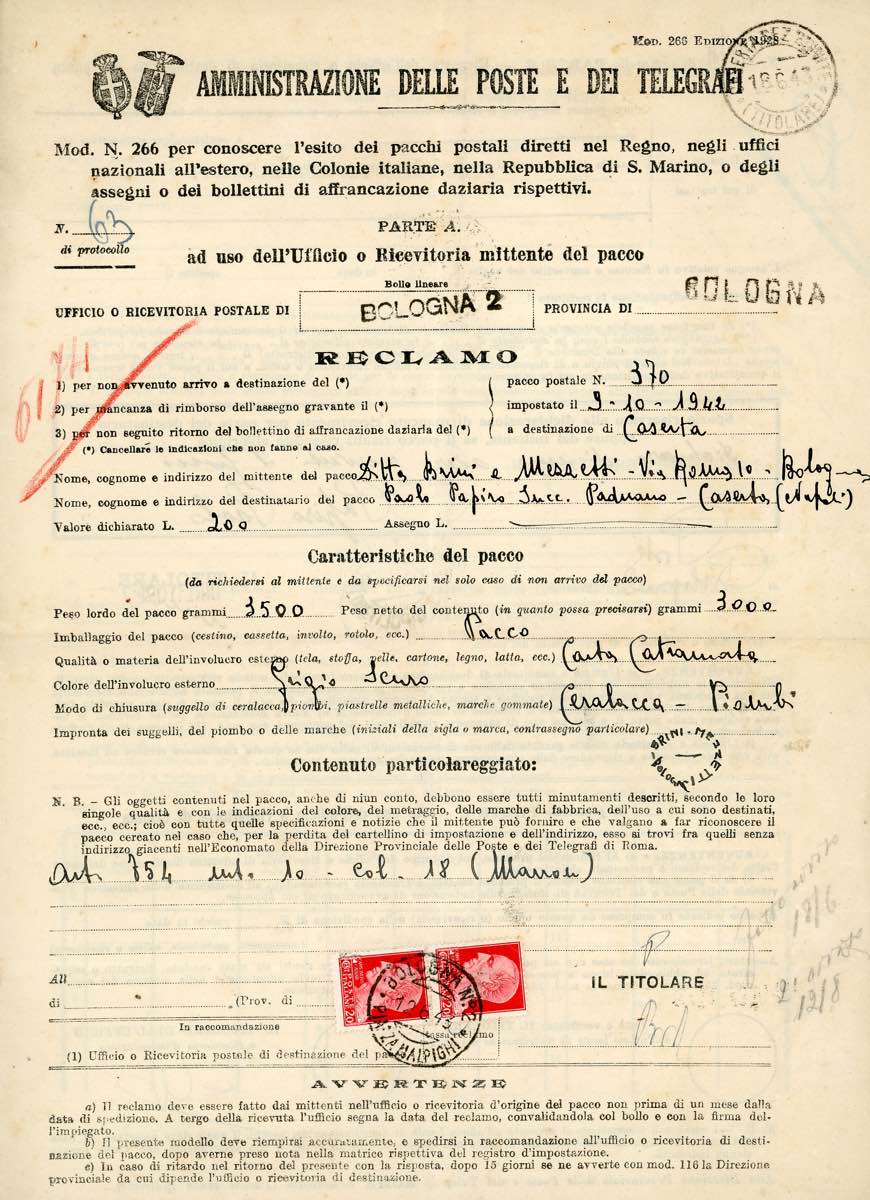 Mod. 266 Edizione 1928
AMMINISTRAZIONE DELLE POSTE E DEI TELEGRAFI
Mod. N. 266 per conoscere l'esito dei pacchi postali diretti nel Regno, negli uffici
nazionali all'estero, nelle Colonie italiane, nella Repubblica di S. Marino, o degli
assegni o dei bollettini di affrancazione daziaria rispettivi.
N. 63
di protocollo
PARTE A.
ad uso dell'Ufficio o Ricevitoria mittente del pacco
Bollo lineare
UFFICIO O RICEVITORIA POSTALE DI BOLOGNA 2 PROVINCIA DI BOLOGNA
RECLAMO
1) per non avvenuto arrivo a destinazione del (*) pacco postale N. 370
2) per mancanza di rimborso dell'assegno gravante il (*) impostato il 9-10-1942
3) per non seguito ritorno del bollettino di affrancazione daziaria del (*) a destinazione di Caserta
(*) Cancellare le indicazioni che non fanno al caso.
Nome, cognome e indirizzo del mittente del pacco Ditta Brini e Mezzetti - Via - Bologna
Nome, cognome e indirizzo del destinatario del pacco Paolo Papiro Succ. Paduano - Caserta (Napoli)
Valore dichiarato L. 200 Assegno L.
Caratteristiche del pacco
(da richiedersi al mittente e da specificarsi nel solo caso di non arrivo del pacco)
Peso lordo del pacco grammi 3500 Peso netto del contenuto (in quanto possa precisarsi) grammi 3000
Imballaggio del pacco (cestino, cassetta, involto, rotolo, ecc.) Pacco
Qualità o materia dell'involucro esterno (tela, stoffa, pelle, cartone, legno, latta, ecc.) Carta Catramata
Colore dell'involucro esterno Grigio Scuro
Modo di chiusura (suggello di ceralacca, piombi, piastrelle metalliche, marche gommate) Ceralacca - Piombi
Impronta dei suggelli, del piombo o delle marche (iniziali della sigla o marca, contrassegno particolare)
BRINI - MEZZETTI Bologna
Contenuto particolareggiato:
N. B. - Gli oggetti contenuti nel pacco, anche di niun conto, debbono essere tutti minutamente descritti, secondo le loro
singole qualità e con le indicazioni del colore, del metraggio, delle marche di fabbrica, dell'uso a cui sono destinati,
ecc., ecc.; cioè con tutte quelle specificazioni e notizie che il mittente può fornire e che valgano a far riconoscere il
pacco cercato nel caso che, per la perdita del cartellino di impostazione e dell'indirizzo, esso si trovi fra quelli senza
indirizzo giacenti nell'Economato della Direzione Provinciale delle Poste e dei Telegrafi di Roma.
Art. 754 10 - col. 18 (Marron)
18/6
12/8
All
IL TITOLARE
di (Prov. di
In raccomandazione
tassa reclamo
POSTE ITALIANE 20
20
BOLOGNA N. 2
P.IN. ZA MALPIGHI
(1) Ufficio o Ricevitoria postale di destinazione del pa
AVVERTENZE
a) Il reclamo deve essere fatto dai mittenti nell'ufficio o ricevitoria d'origine del pacco non prima di un mese dalla
data di spedizione. A tergo della ricevuta l'ufficio segna la data del reclamo, convalidandola col bollo e con la firma del-
l'impiegato.
b) Il presente modello deve riempirsi accuratamente, e spedirsi in raccomandazione all'ufficio o ricevitoria di desti-
nazione del pacco, dopo averne preso nota nella matrice rispettiva del registro d'impostazione.
c) In caso di ritardo nel ritorno del presente con la risposta, dopo 15 giorni se ne avverte con mod. 116 la Direzione
provinciale da cui dipende l'ufficio o ricevitoria di destinazione.